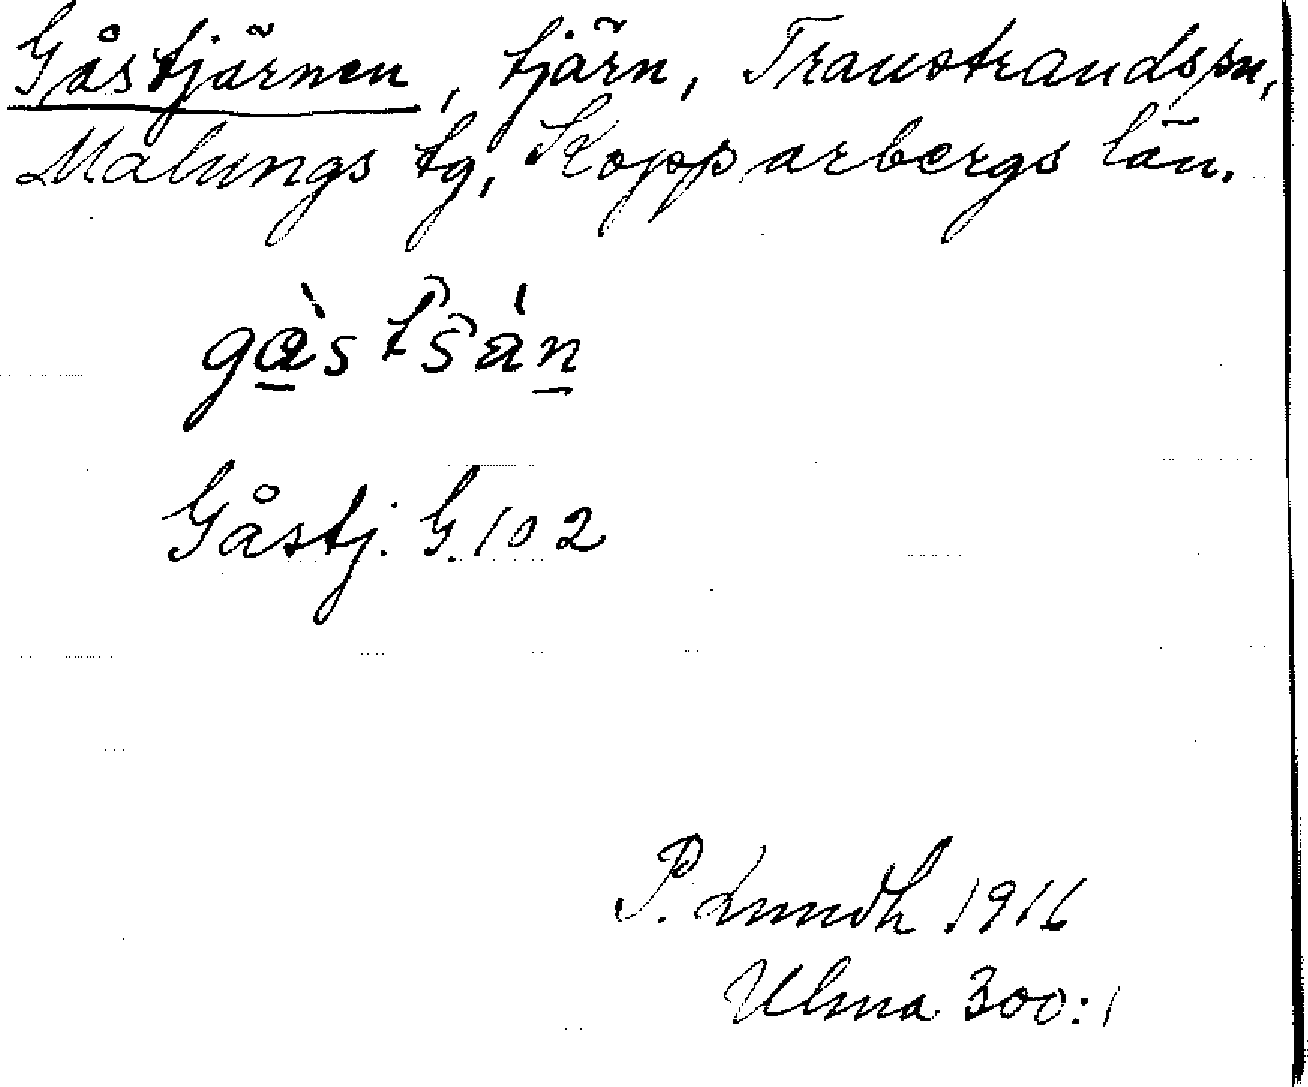 Gåstjärnen, tjärn, Transtrands sn,
Malungs tg, Kopparbergs län.
gàstsán
Gåstj. G. 102
P. Lundh 1916
Ulma 300:1